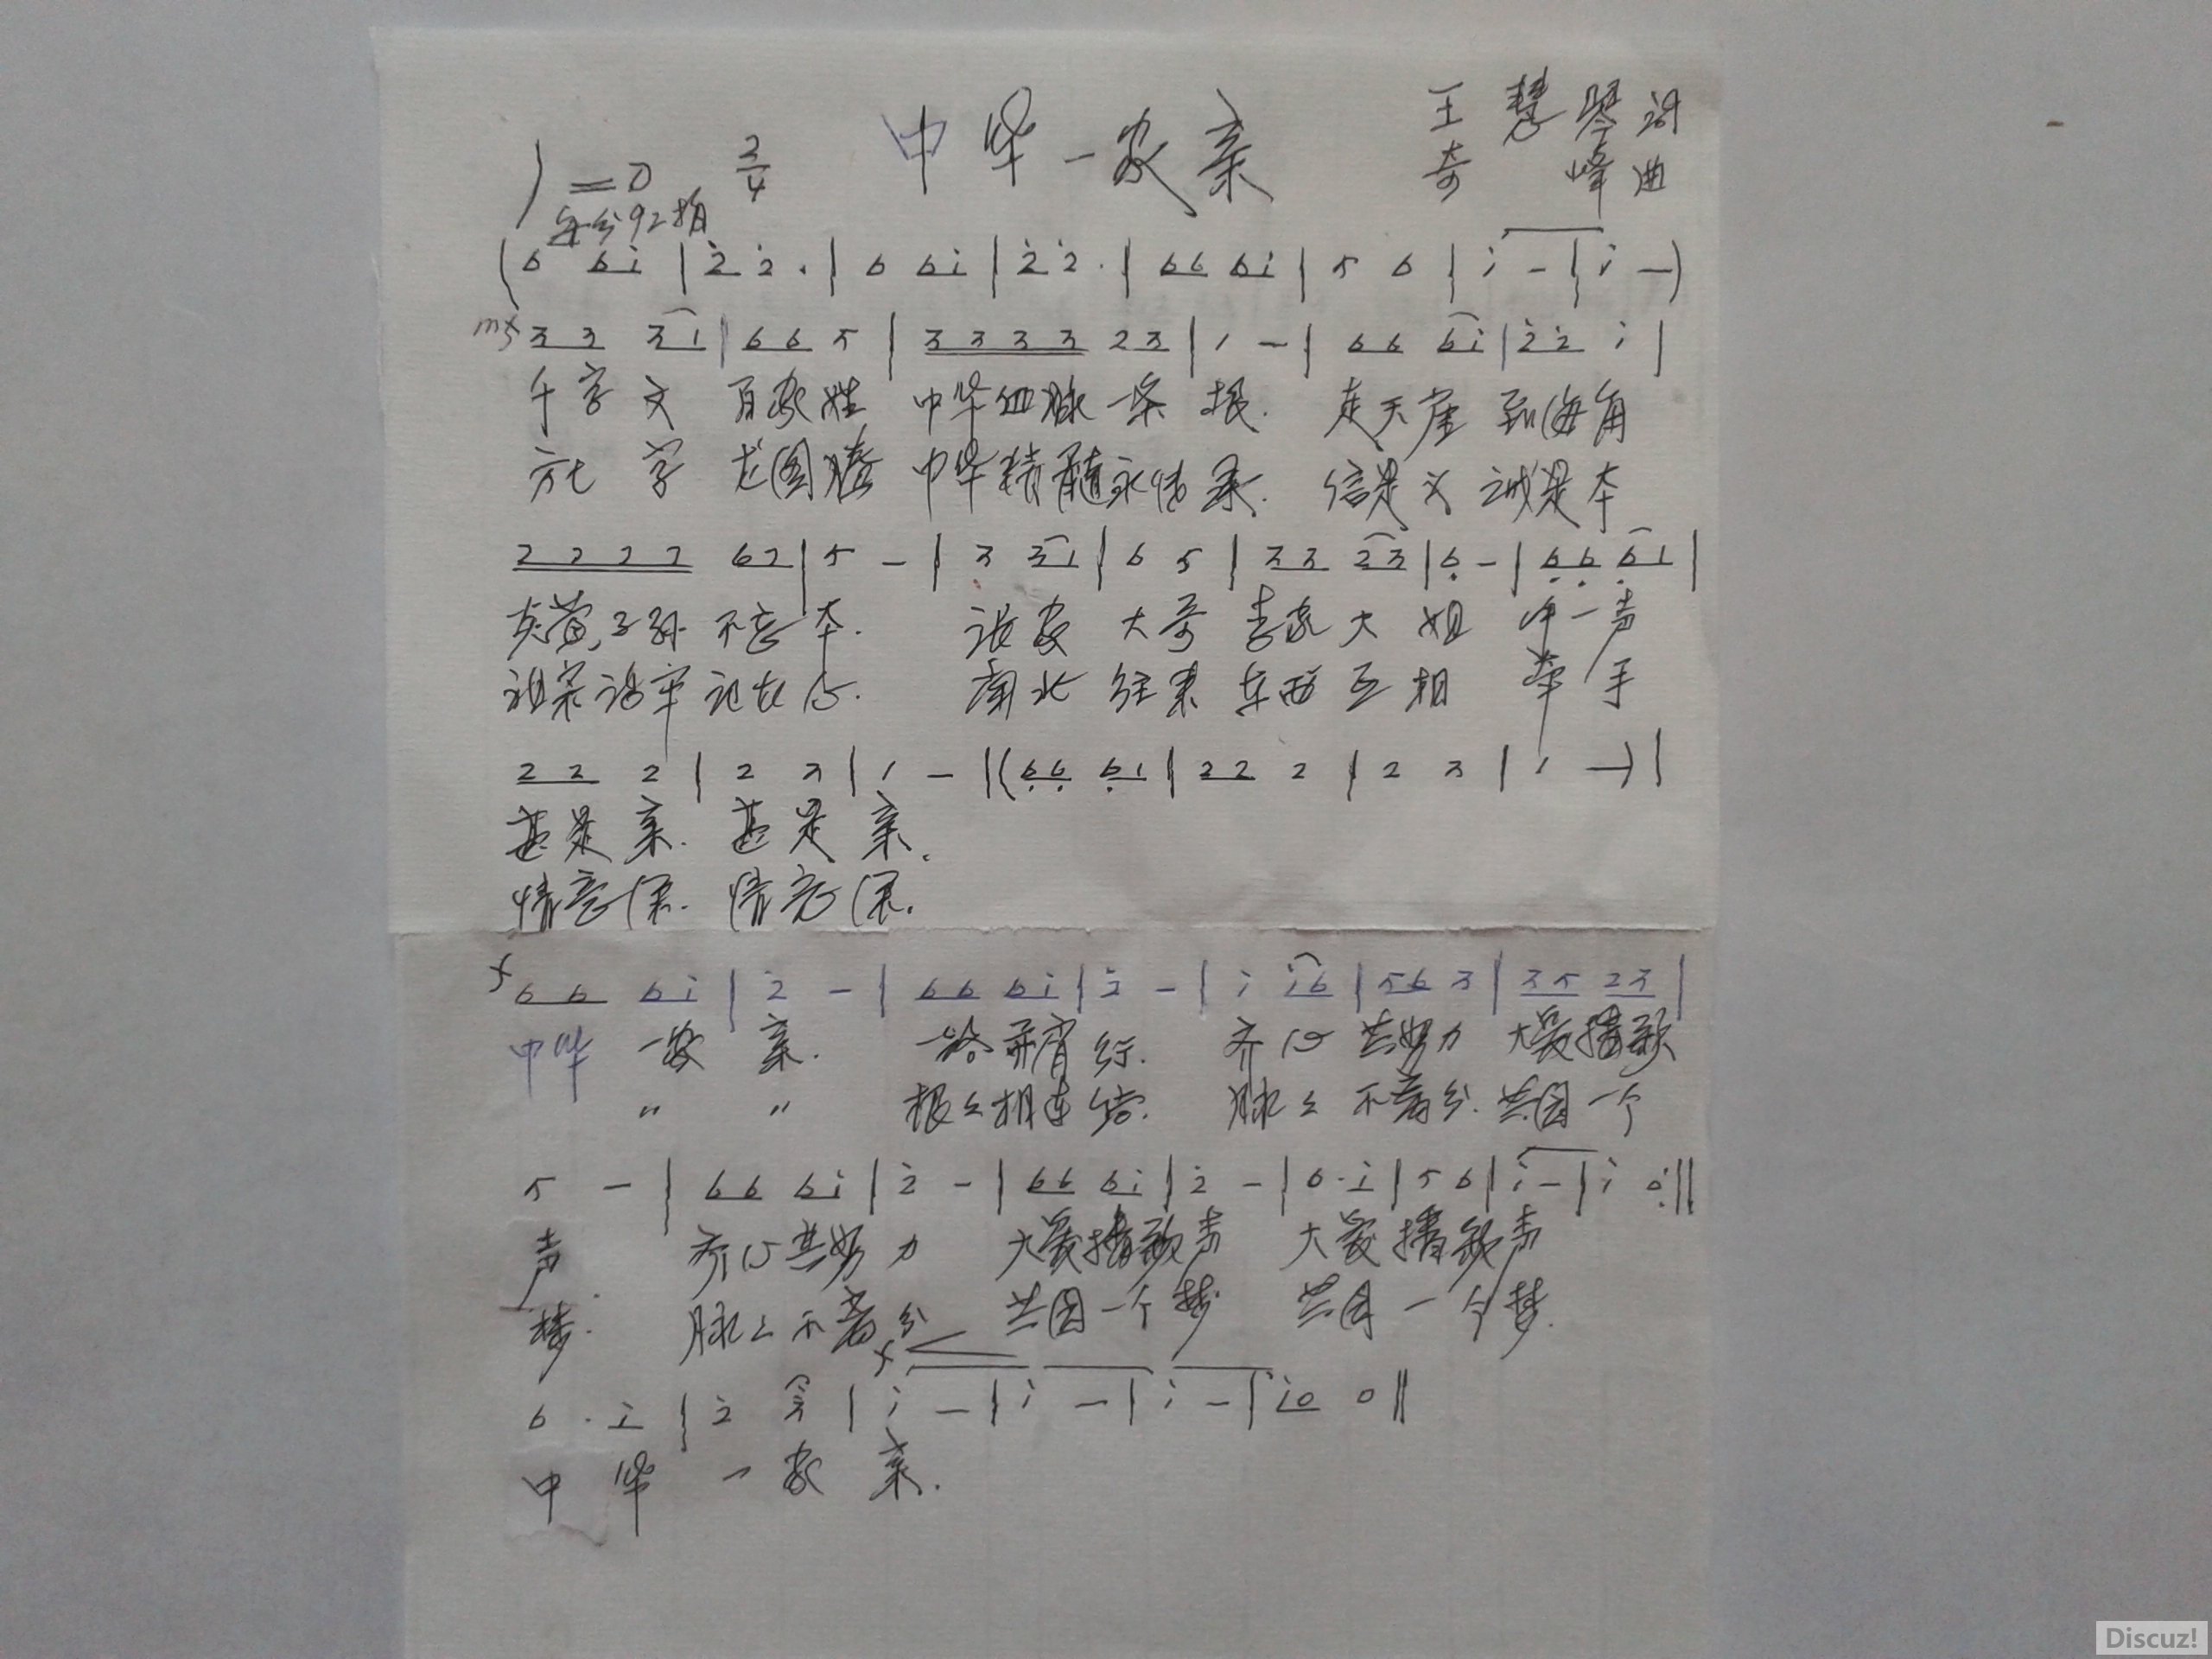 中华一家亲 王慧琴词
1=D 2/4 奇峰曲
每分92拍
(6 6i | 2̇ 2̇ · | 6 6i | 2̇ 2̇ · | 66 6i | 5 6 | i – | i –)
mf 3 3 3 1 | 6 6 5 | 3 3 3 3 2 3 | 1 – | 66 6i | 2̇ 2̇ i |
千字文 百家姓 中华血脉一条根. 走天崖 到海角
方 字 龙图腾 中华精髓永传承. 信是义 诚是本
2 2 2 2 6 2 | 5 – | 3 3 1 | 6 5 | 3 3 2 3 | 6̣ – | 6̣ 6̣ 6̣ 1 |
炎黄子孙不忘本. 张家大哥李家大姐 一声
祖宗 牢记在心. 南北往来东西互相 牵手
2 2 2 | 2 3 | 1 – | (6̣ 6̣ 6̣ 1 | 2 2 2 | 2 3 | 1 –) |
甚是亲. 甚是亲.
情意深. 情意深.
f 6 6 6 i | 2̇ – | 66 6i | 2̇ – | i i6 | 56 3 | 35 23 |
中华一家亲. 一路 行. 齐心共努力 大爱播歌
〃 〃 根々相连结. 脉々不离分. 共圆一个
5 – | 66 6i | 2̇ – | 66 6i | 2̇ – | 6 · i | 5 6 | i – | i 0 :||
声. 齐心共努力 大爱播歌声 大爱播歌声
梦. 脉々不离分 共圆一个梦 共圆一个梦.
f
6 · i | 2̇ 3̇ | i – | i – | i – | i0 0 ||
中华一家亲.
Discuz!